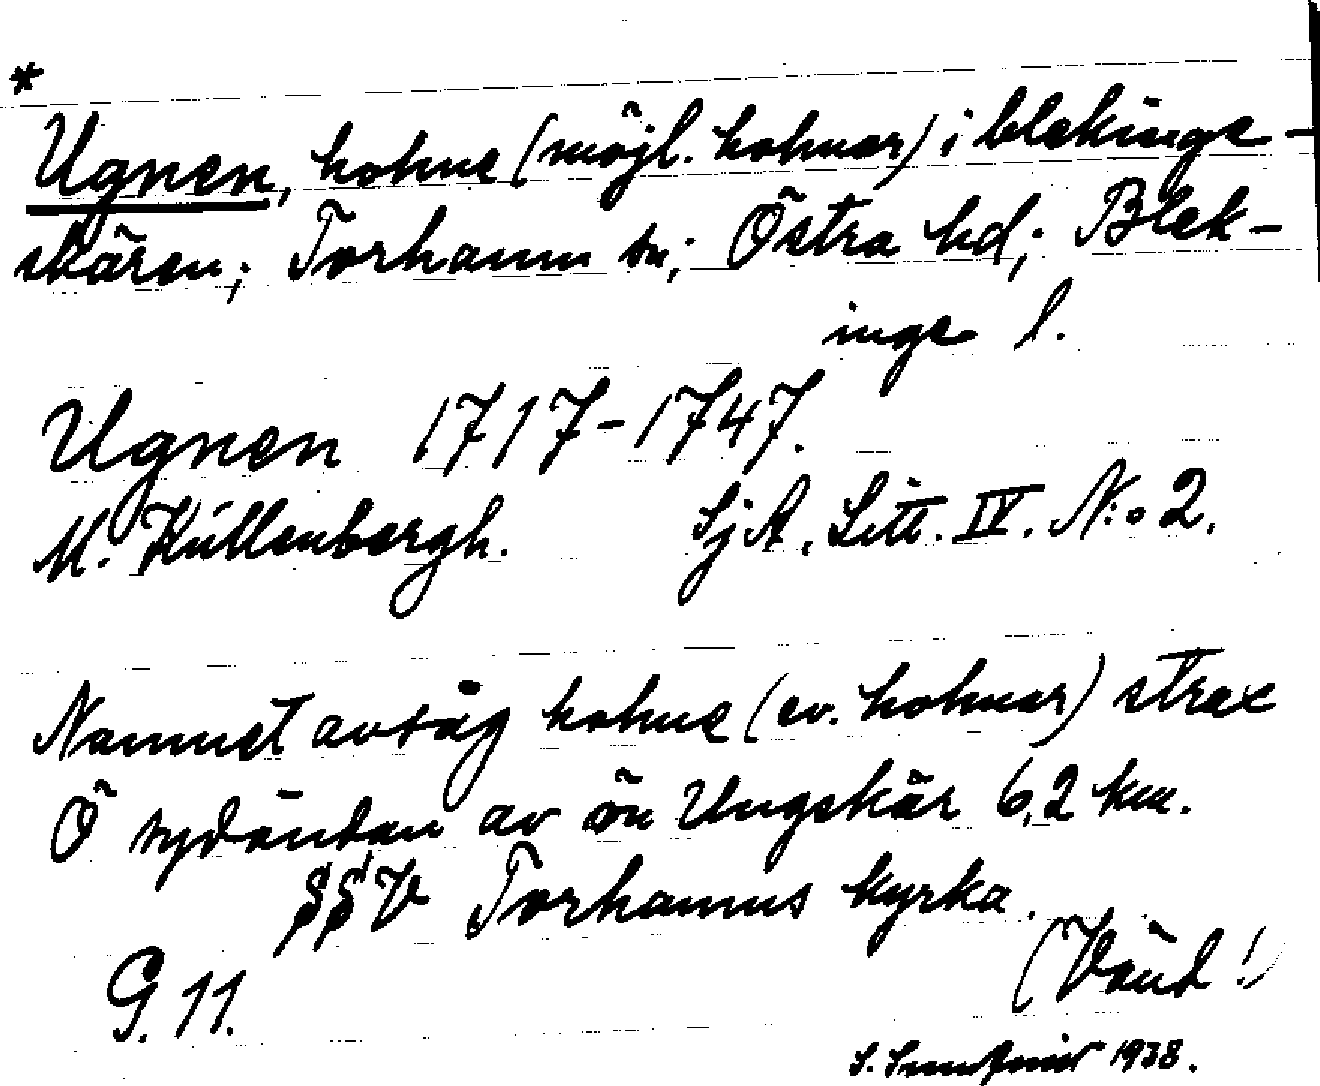 *
Ugnen, holme (möjl. holmar) i blekinge-
skären; Torhamn sn; Östra hd; Blek-
inge l.
Ugnen 1717-1747.
M. Küllenbergh. SjA, Litt. IV. N:o 2.
Namnet avsåg holme (ev. holmar) strax
Ö sydändan av ön Ungskär 6,2 km.
SSV Torhamns kyrka.
(Vänd!)
G. 11.
S. 1938.